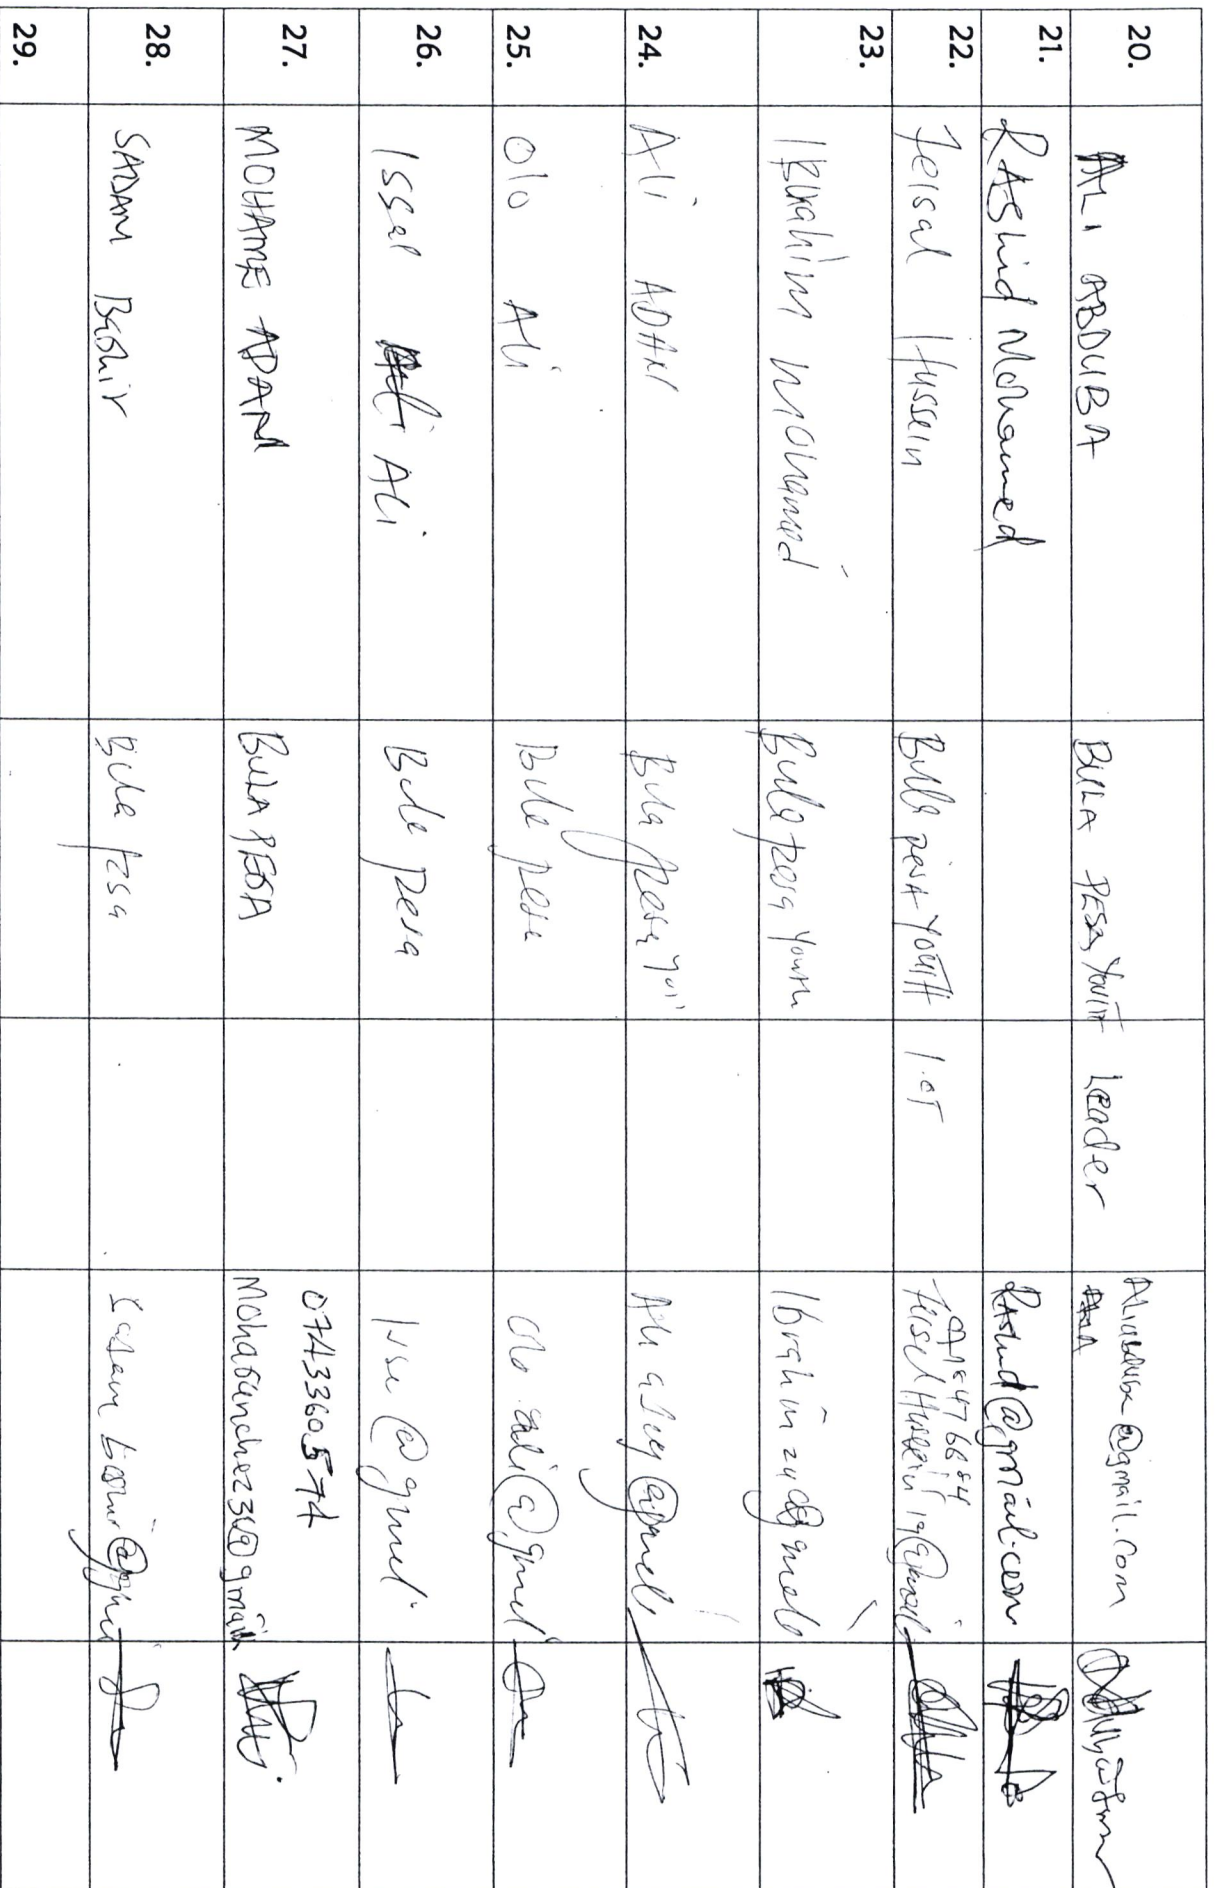 20. ALI ABDUBA BULA PESA YOUTH Leader Aliabduba@gmail.com
21. RAShid Mohamed RAShid@gmail.com
22. Feisal Hussein Bulla pesa YOUTH I.CT
Feisal Hussein 19@gmail
23. IBrahim Mohamed Bula pesa Youth Ibrahim
24. Ali ADAN Bula Pesa
25. Olo Ali Bula pesa Olo ali@gmail
26. Issac Ali Bula pesa @gmail
27. MOHAME ADAN BULA PESA 0743360574
28. SADAM Bashir Bula Pesa Sadam bashir
29.